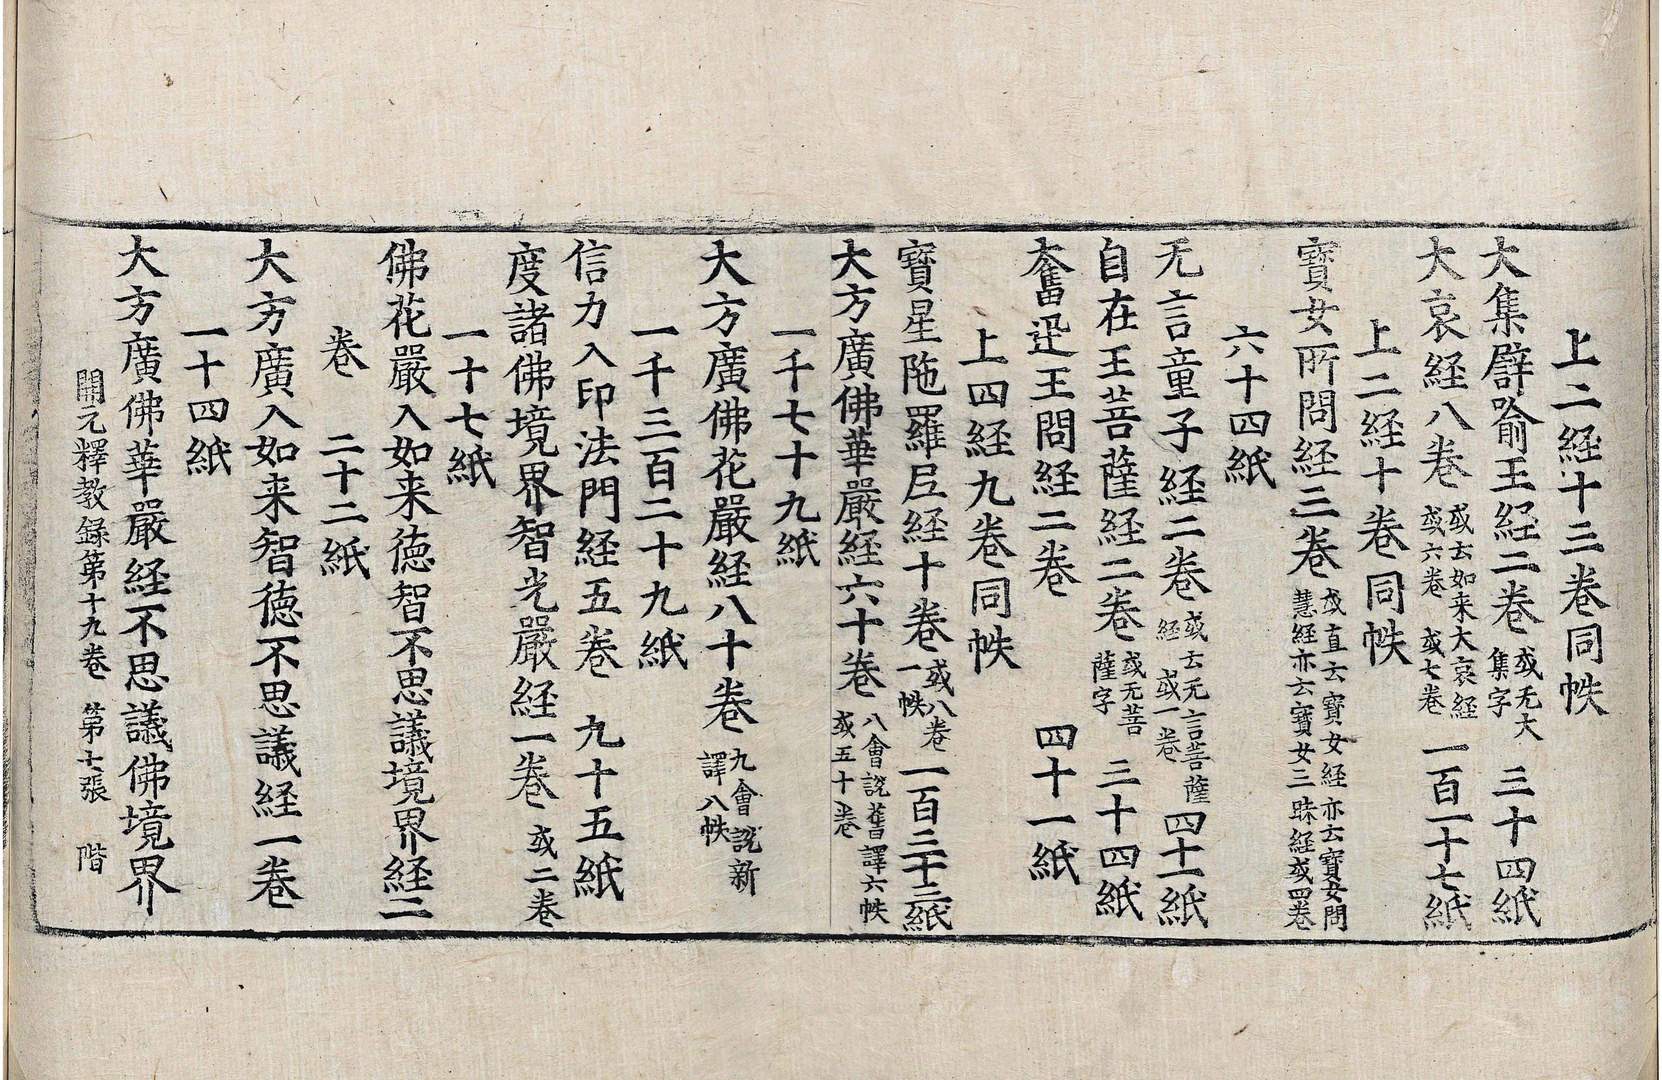 上二経十三卷同帙
大集譬喻王経二卷 或无大集字 三十四紙
大哀経八卷 或云如来大哀経或六卷 或七卷 一百一十七紙
上二経十卷同帙
寶女所問経三卷 或直云寶女経亦云寶女問慧経亦云寶女三昧経或四卷
六十四紙
无言童子経二卷 或云无言菩薩経 或一卷 四十一紙
自在王菩薩経二卷 或无菩薩字 三十四紙
奮迅王問経二卷 四十一紙
上四経九卷同帙
寶星陁羅尼経十卷 或八卷一帙 一百三十三紙
大方廣佛華嚴経六十卷 八會說舊譯六帙或五十卷
一千七十九紙
大方廣佛花嚴経八十卷 九會說新譯八帙
一千三百二十九紙
信力入印法門経五卷 九十五紙
度諸佛境界智光嚴経一卷 或二卷
一十七紙
佛花嚴入如来徳智不思議境界経二
卷 二十二紙
大方廣入如来智徳不思議経一卷
一十四紙
大方廣佛華嚴経不思議佛境界
開元釋教録第十九卷 第七張 階